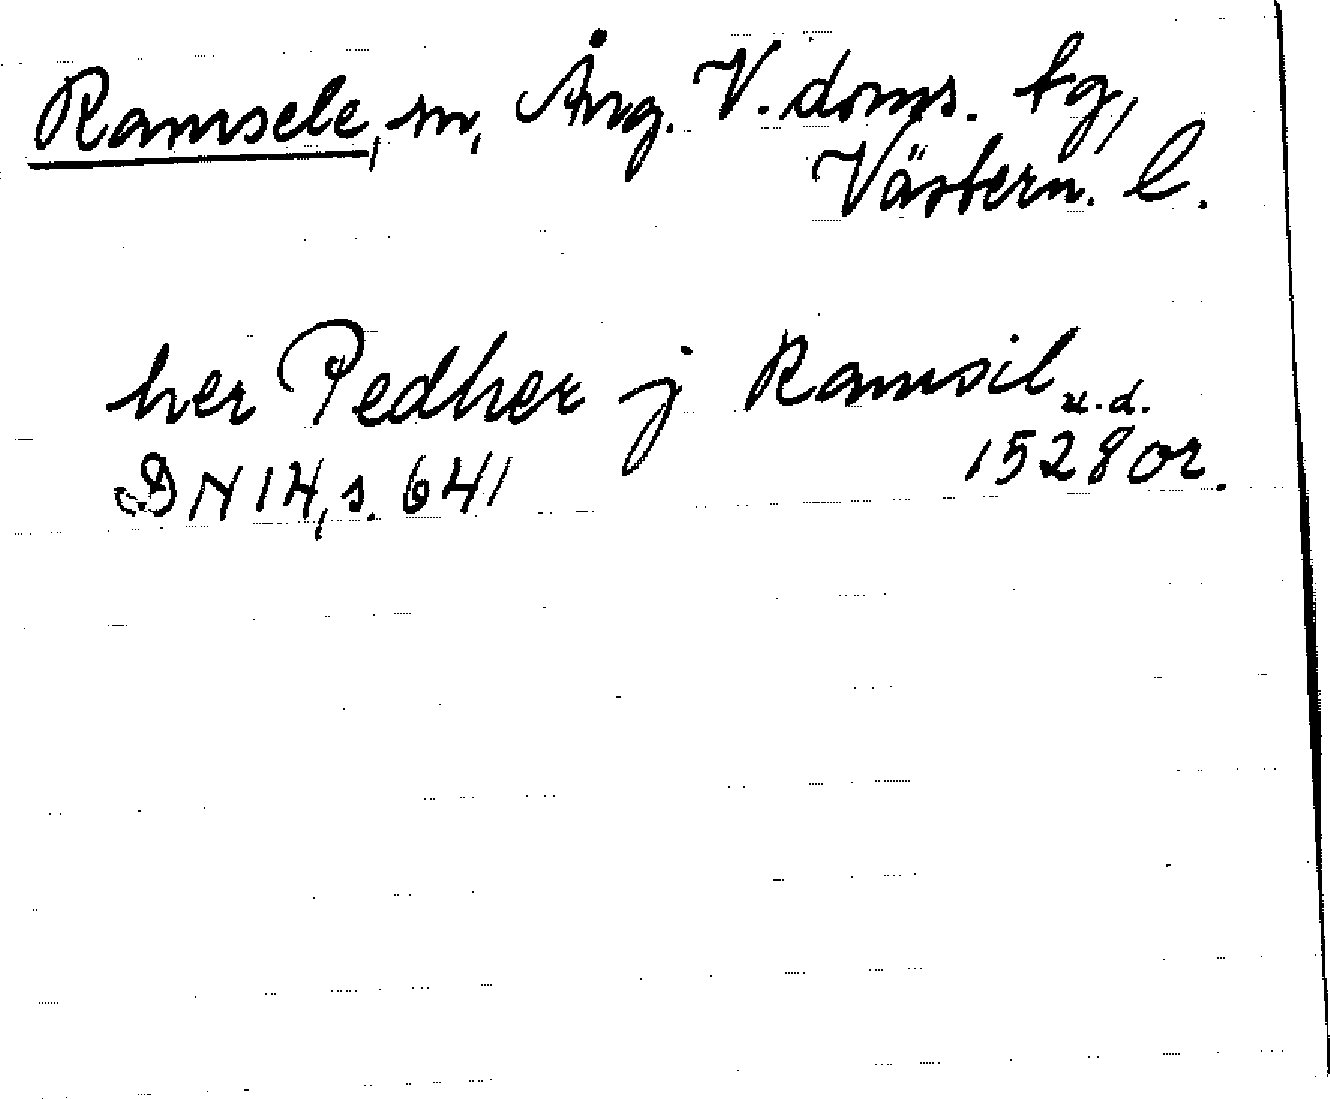 Ramsele, sn, Ång. V. doms. tg,
Västern. l.
her Pedher j Ramsil u.d.
DN 14, s. 641 1528 or.